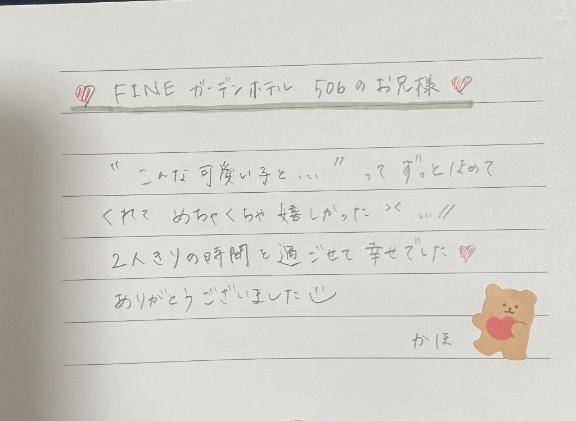 ♥ FINE ガーデンホテル 506のお兄様 ♥
"こんな可愛い子と..." って ずっとほめて
くれて めちゃくちゃ 嬉しかった >< ...//
2人きりの時間を過ごせて 幸せでした♥
ありがとうございました
かほ